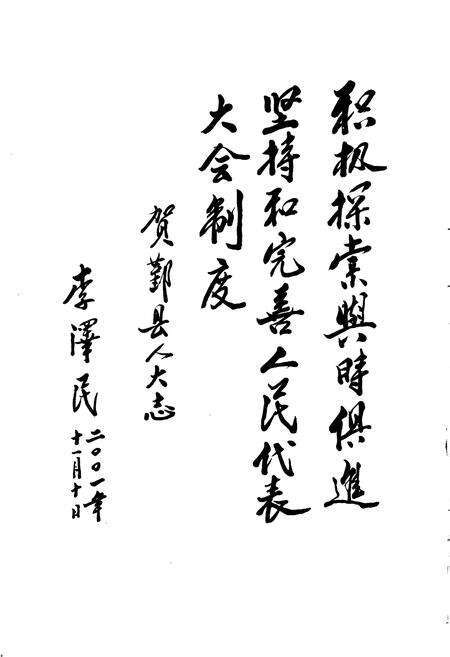 积极探索與時俱進
坚持和完善人民代表
大会制度
贺鄞县人大志
李澤民
二〇〇一年
十一月十日